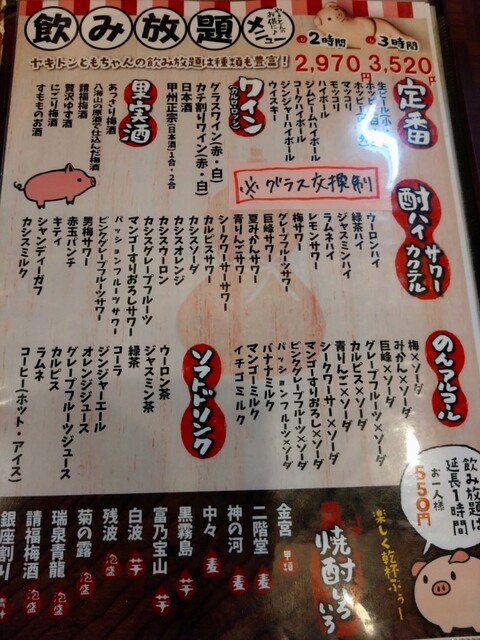 飲み放題メニュー
2時間
3時間
2,970円
3,520円
ヤキトンともちゃんの飲み放題は種類も豊富!
定番
生ビール(小・
ホッピー
ホッピー
マッコリ
モッコリ
ハイボール
ジムビームハイボール
コークハイボール
ジンジャーハイボール
ウイスキー
ワイン
(カルロロッシ)
グラスワイン(赤・白)
カチ割りワイン(赤・白)
日本酒
甲州正宗(日本酒)1合・2合
果実酒
あっさり梅酒
八海山の原酒で仕込んだ梅酒
請福梅酒
贅沢ゆず酒
にごり梅酒
すもものお酒
※グラス交換制
酎ハイ サワー カクテル
ウーロンハイ
緑茶ハイ
ジャスミンハイ
ラムネハイ
レモンサワー
梅サワー
グレープフルーツサワー
巨峰サワー
夏みかんサワー
青りんごサワー
シークワーサーサワー
カルピスサワー
カシスソーダ
カシスオレンジ
カシスウーロン
カシスグレープフルーツ
マンゴーすりおろしサワー
パッションフルーツサワー
ピンクグレープフルーツサワー
男梅サワー
赤玉パンチ
キティ
シャンディーガフ
カシスミルク
のんアルコール
梅×ソーダ
みかん×ソーダ
巨峰×ソーダ
グレープフルーツ×ソーダ
カルピス×ソーダ
青りんご×ソーダ
シークワーサー×ソーダ
マンゴーすりおろし×ソーダ
ピンクグレープフルーツ×ソーダ
パッションフルーツ×ソーダ
バナナミルク
マンゴーミルク
イチゴミルク
ソフトドリンク
ウーロン茶
ジャスミン茶
緑茶
コーラ
ジンジャーエール
オレンジジュース
グレープフルーツジュース
カルピス
ラムネ
コーヒー(ホット・アイス)
飲み放題は
延長1時間
お一人様
550円
楽しく乾杯ぶぅー
焼酎いろいろ
金宮 甲類
二階堂 麦
神の河 麦
中々 麦
黒霧島 芋
富乃宝山 芋
白波 芋
残波 泡盛
菊の露 泡盛
瑞泉青龍 泡盛
請福梅酒 泡盛
銀座割り